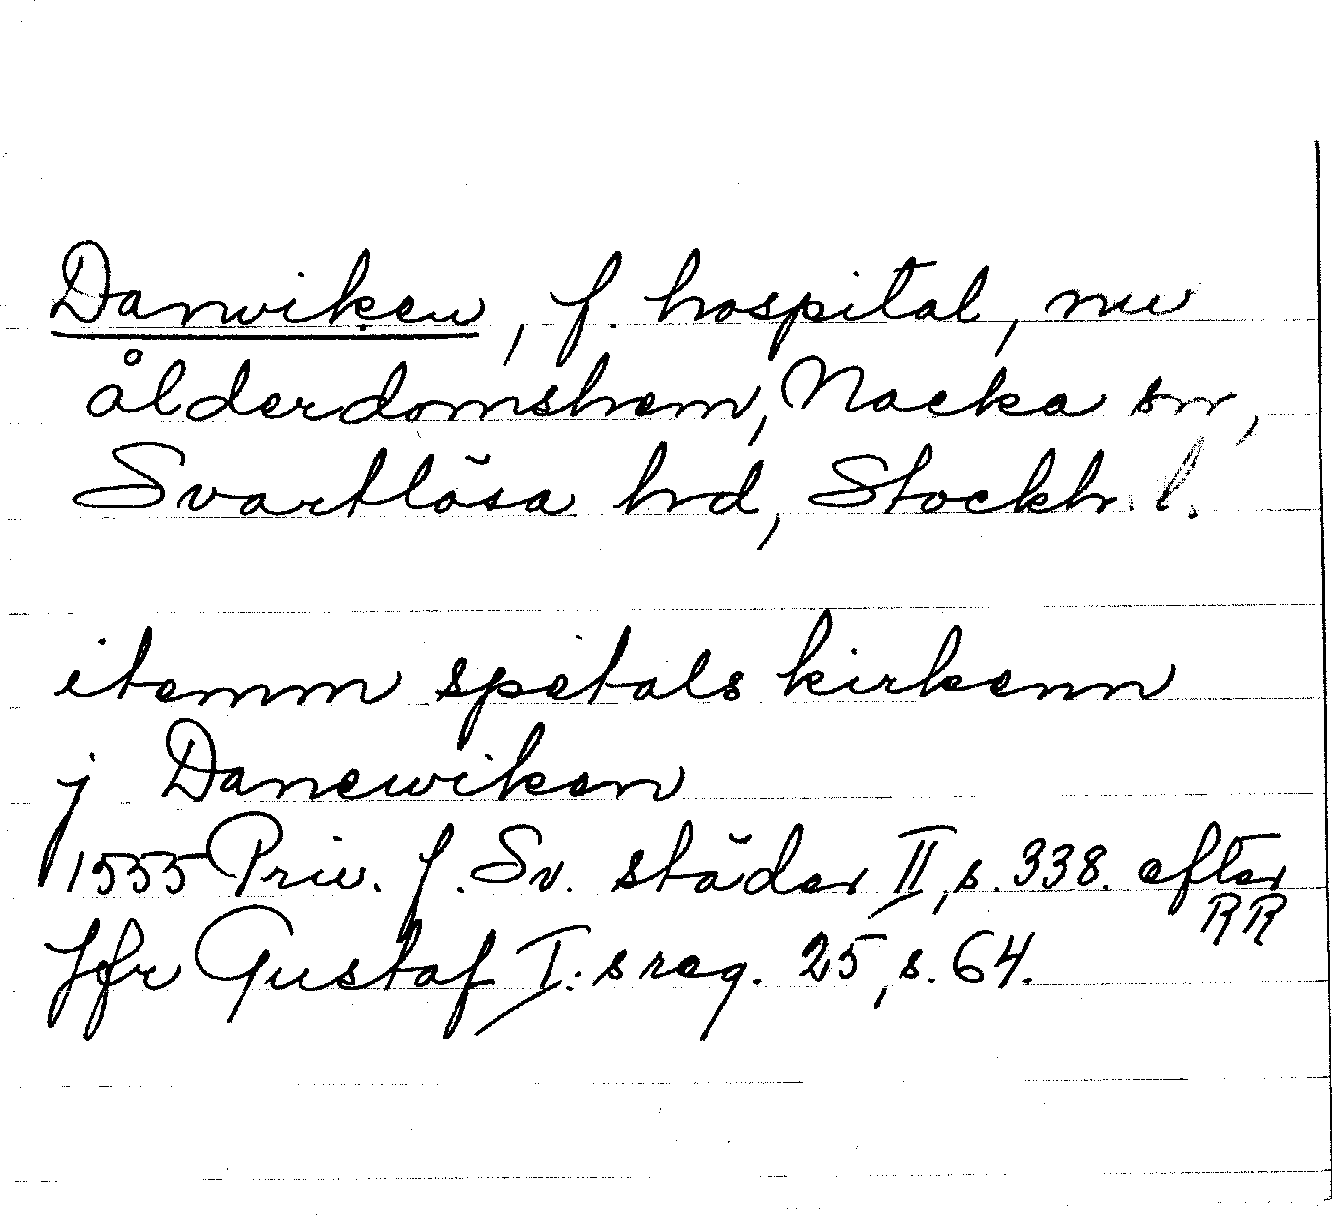 Danviken, f. hospital, nu
ålderdomshem, Nacka sn,
Svartlösa hrd, Stockh. l.
itemm spetals kirkenn
j Danewiken
1555 Priv. f. Sv. städer II, s. 338. efter
RR
Jfr Gustaf I:s reg. 25, s. 64.